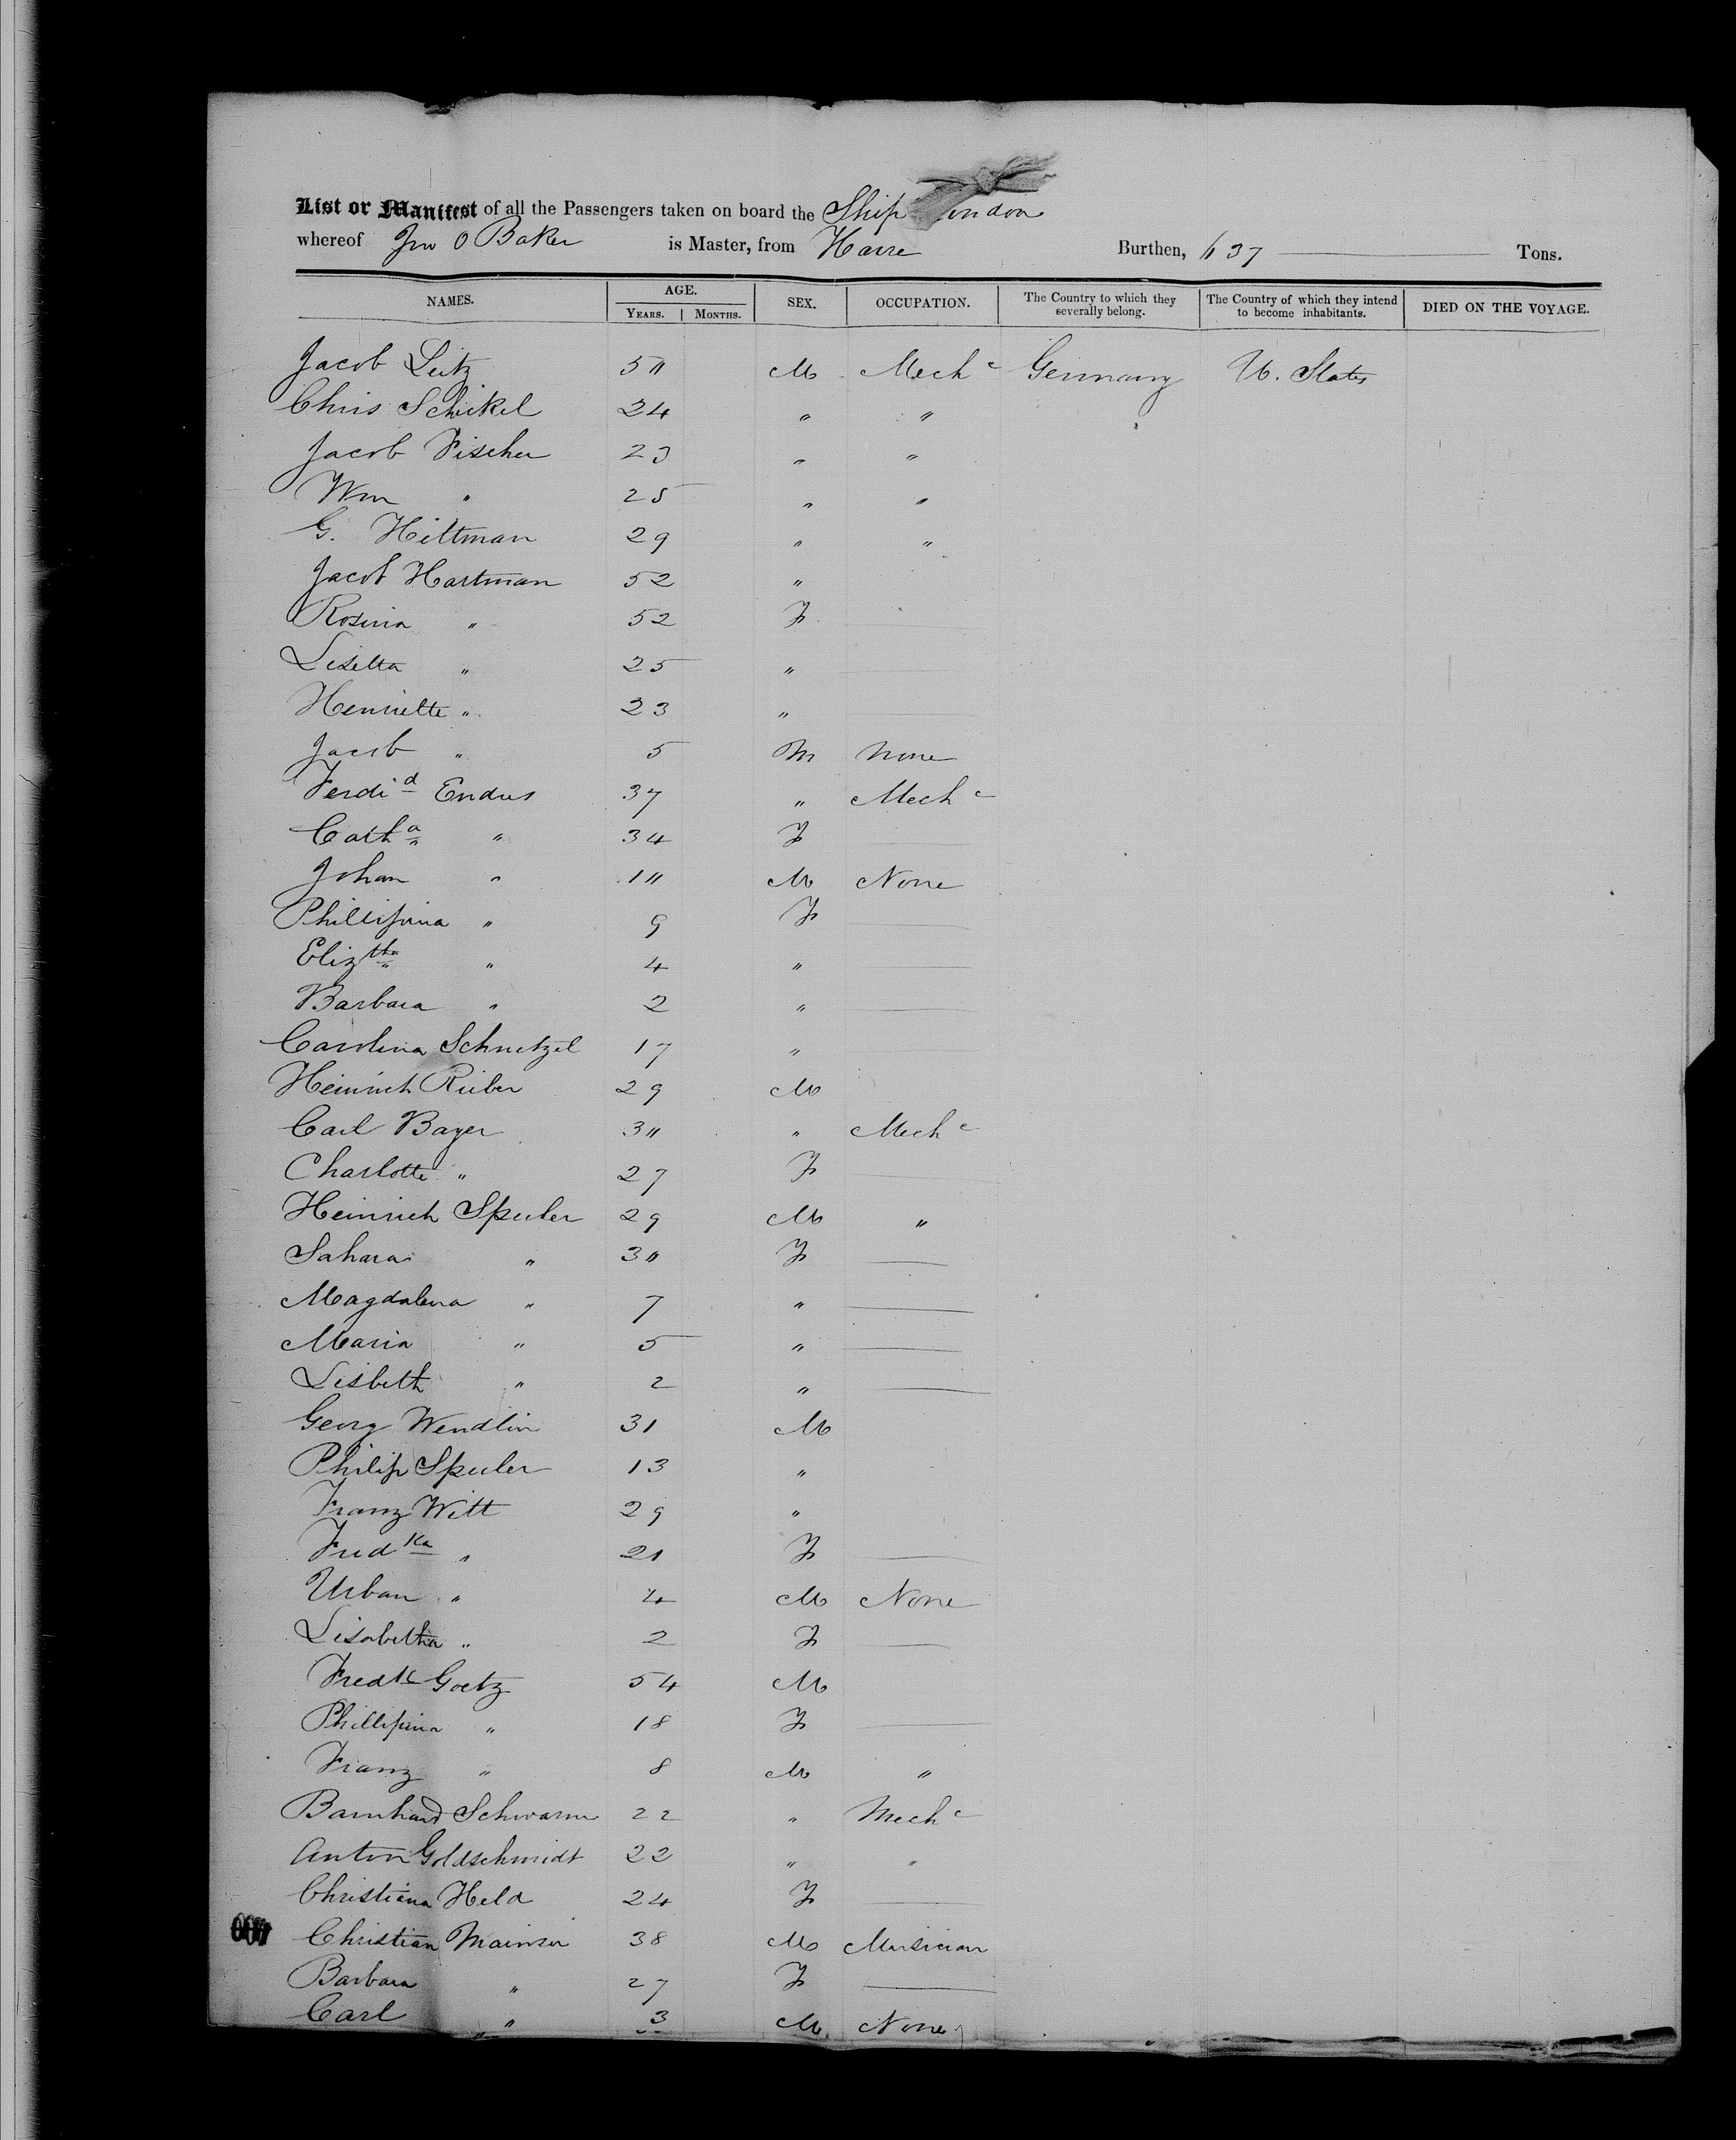 List or Manifest of all the Passengers taken on board the Ship London
whereof Jno O Baker is Master, from Havre Burthen, 637 Tons.
NAMES. AGE. YEARS. MONTHS. SEX. OCCUPATION. The Country to which they severally belong. The Country of which they intend to become inhabitants. DIED ON THE VOYAGE.
Jacob 5" M Mechc Germany U. States
Chris Schikel 24 " "
Jacob Fischer 23 " "
Wm " 25 " "
G. Hiltman 29 " "
Jacob Hartman 52 "
Rosina " 52 F
Lisetta " 25 "
Henriette " 23 "
Jacob " 5 M None
Ferdid Endres 37 " Mechc
Catha " 34 F
Johan " 1" M None
Phillipina " 9 F
Eliztha " 4 "
Barbara " 2 "
Carolina Schnetzel 17 "
Heinrich Rieber 29 M
Carl Bayer 3" " Mechc
Charlotte " 27 F
Heinrich Speeler 29 M "
Sahara " 3" F
Magdalena " 7 "
Maria " 5 "
Lisbeth " 2 "
Georg Wendlin 31 M
Philip Speeler 13 "
Franz Witt 29 "
Fredka " 21 F
Urban " 4 M None
Lisabetha " 2 F
Fredk Goetz 54 M
Phillipina " 18 F
Franz " 8 M "
Barnhard Schwarm 22 " Mechc
Anton Goldschmidt 22 " "
Christiana Held 24 F
Christian 38 M Musician
Barbara " 27 F
Carl " 3 M None